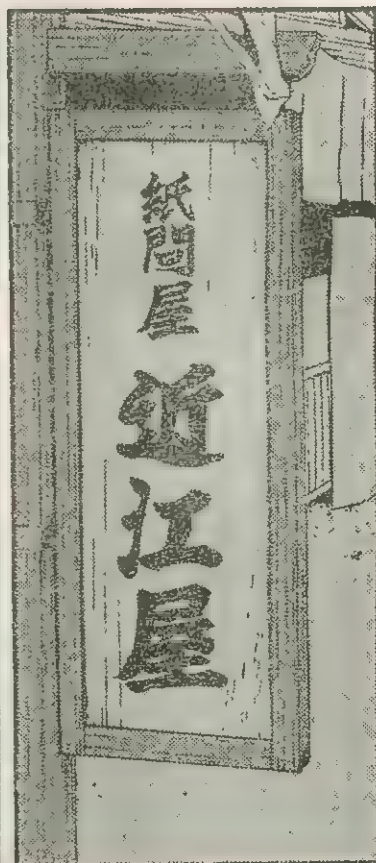 紙問屋 近江屋